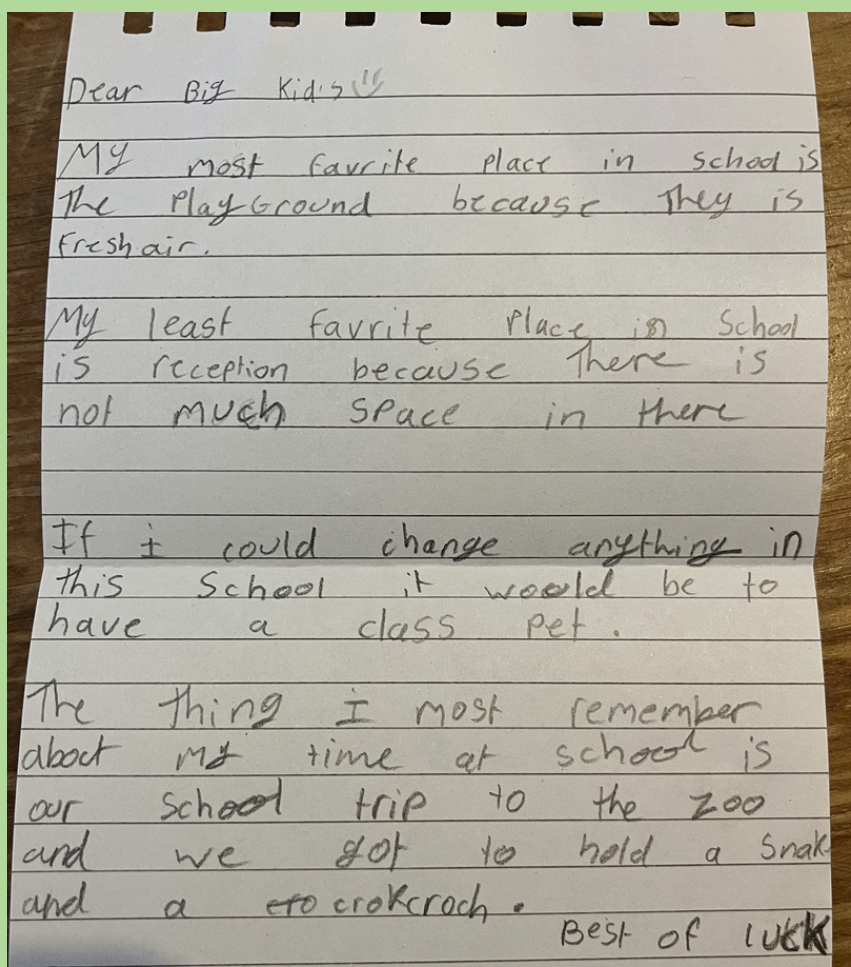 Dear Big Kid's
My most favrite place in school is
the playGround because they is
fresh air.
My least favrite place in school
is reception because there is
not much space in there
If i could change anything in
this school it woold be to
have a class pet.
The thing I most remember
aboct my time at school is
our school trip to the zoo
and we got to hold a snak
and a cro crokcroch.
Best of luck